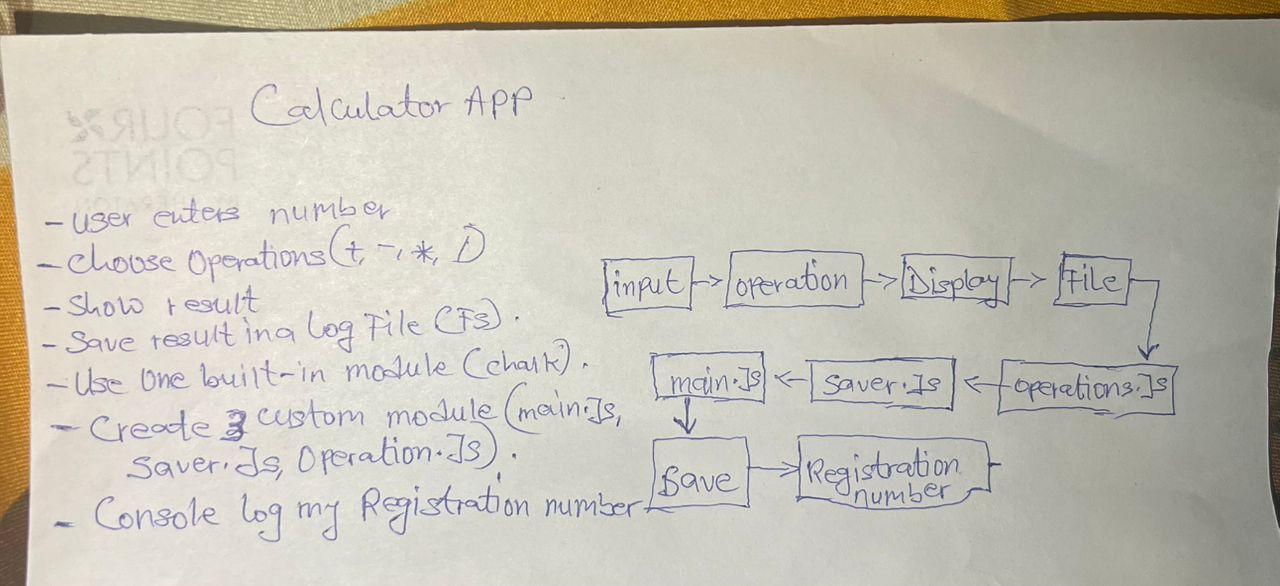 Calculator APP
- User enters number
- Choose Operations (+, -, *, /)
- Show result
- Save result in a Log File (Fs).
- Use One built-in module (chalk).
- Create 3 custom module (main.Js,
Saver.Js, Operation.Js).
- Console log my Registration number
input -> operation -> Display -> File
main.Js <- Saver.Js <- operations.Js
Save -> Registration
number
FOUR
POINTS